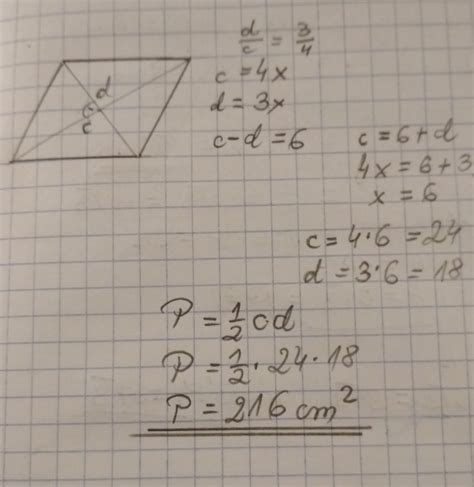 d
c
d/c = 3/4
c = 4x
d = 3x
c-d = 6
c = 6+d
4x = 6+3
x = 6
c = 4·6 = 24
d = 3·6 = 18
P = 1/2 cd
P = 1/2 · 24 · 18
P = 216 cm²